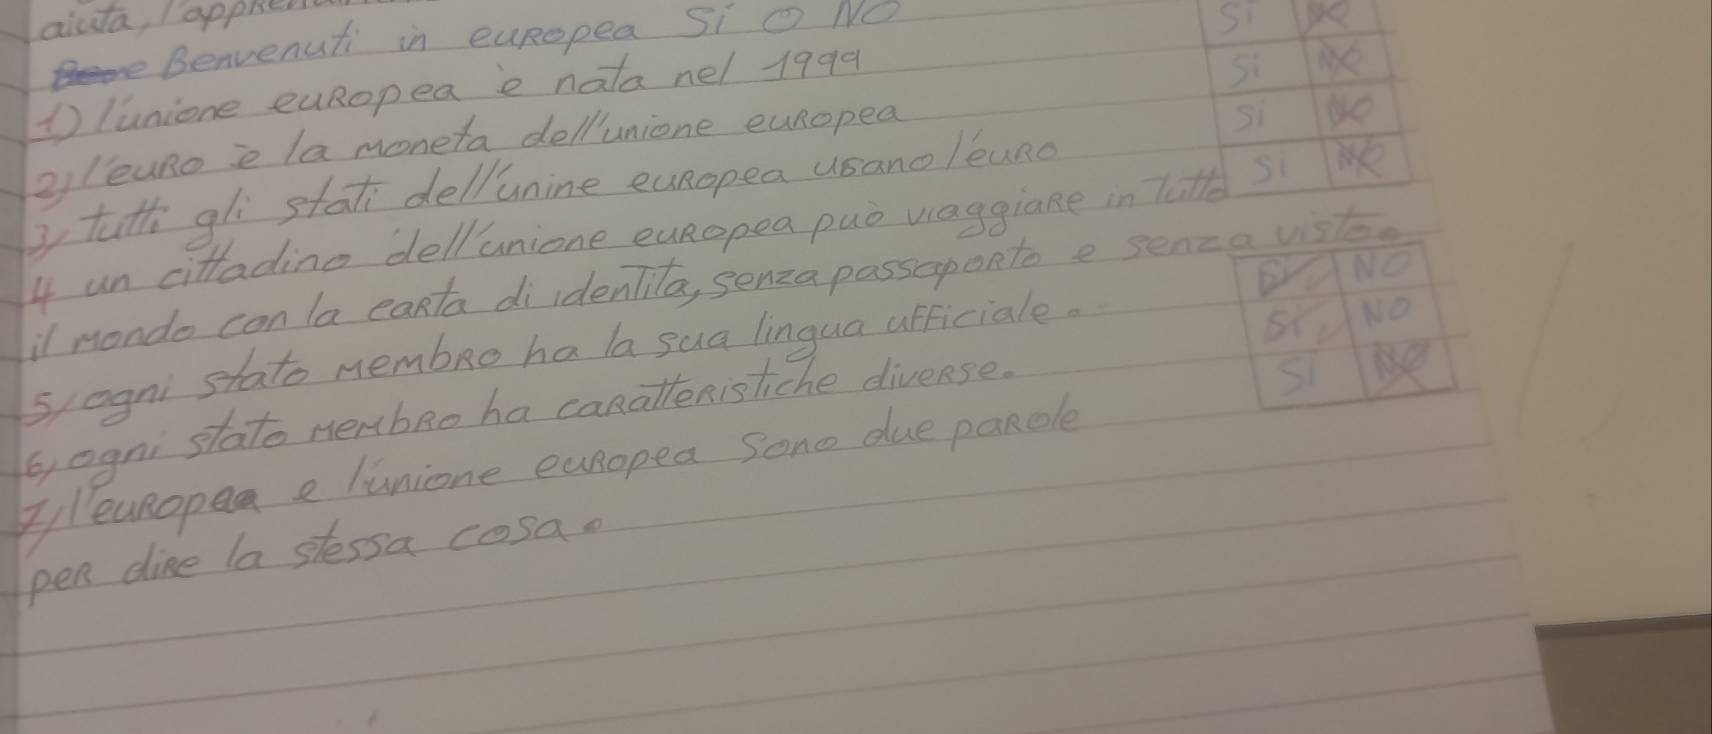 aiuta, l'appren
Benvenuti in euRopea Si O NO
1) l'unione euRopea è nata nel 1999 Si NO
2) l'euRo è la moneta dell'unione euRopea Si NO
3) tutti gli stati dell'unine euRopea usano l'euRo Si NO
4 un cittadino dell'unione euRopea può viaggiaRe in tutto Si NO
il mondo con la caRta di identita, senza passapoRto e senza visto.
5) ogni stato membRo ha la sua lingua ufficiale. Si NO
6) ogni stato membRo ha caRatteRistiche diveRse. Si NO
7) l'euRopea e l'unione euRopea sono due paRole Si NO
peR diRe la stessa cosa.